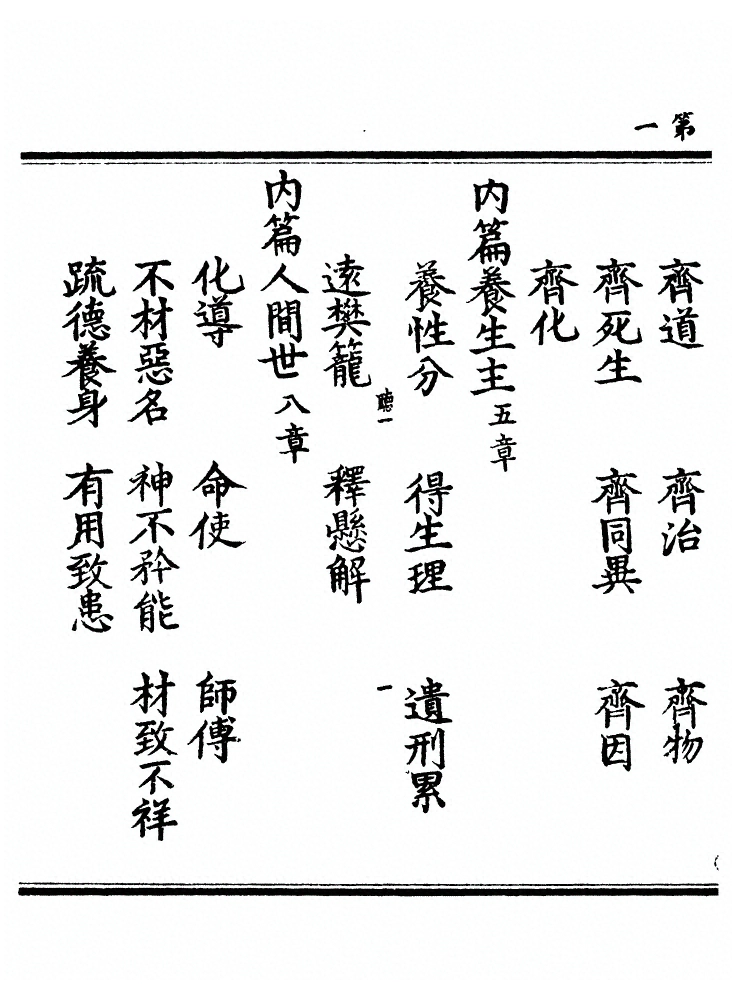 第一
齊道 齊治 齊物
齊死生 齊同異 齊因
齊化
內篇養生主五章
養性分 得生理 遺刑累
聽一 一
遠樊籠 釋懸解
內篇人間世八章
化導 命使 師傅
不材惡名 神不矜能 材致不祥
疏德養身 有用致患